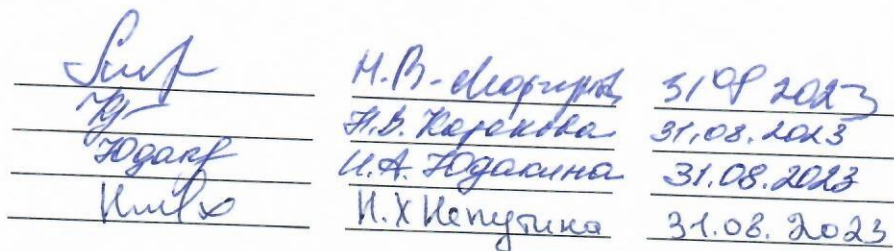 Н.В. 31.08 2023
Н.В. Казакова 31.08.2023
Юдак И.А. Юдакина 31.08.2023
Н.Х Непутина 31.08.2023